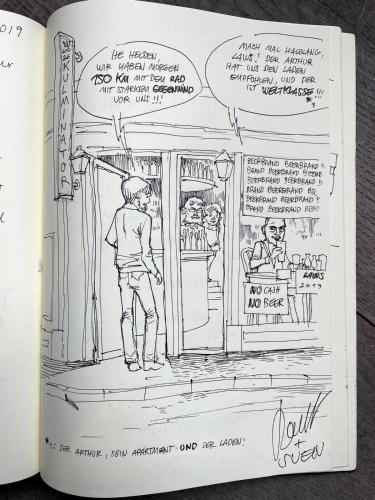 2019
HE HELDEN,
WIR HABEN MORGEN
150 KM MIT DEM RAD
MIT STARKEM GEGENWIND
VOR UNS!!!
MACH MAL HALBLANG,
LAWS! DER ARTHUR
HAT UNS DEN LADEN
EMPFOHLEN, UND DER
IST WELTKLASSE!!!
*1
KULMINATOR
BEERBRAND BEERBRAND B
BRAND BEERBRAND BEERB
BEERBRAND BEERBRAND B
BRAND BEERBRAND BE
BEERBRAND BEERBRAND B
BRAND BEERBRAND BEER
LAWS
2019
NO CASH
NO BEER
*1: DER ARTHUR, SEIN APARTMENT UND DER LADEN!
+
SVEN